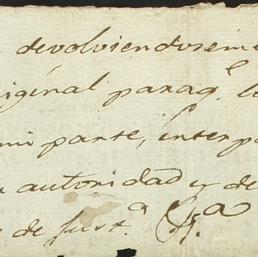 devolviendoseme
iginal paraq.e
mi parte, interp
autoridad y de
de just.a